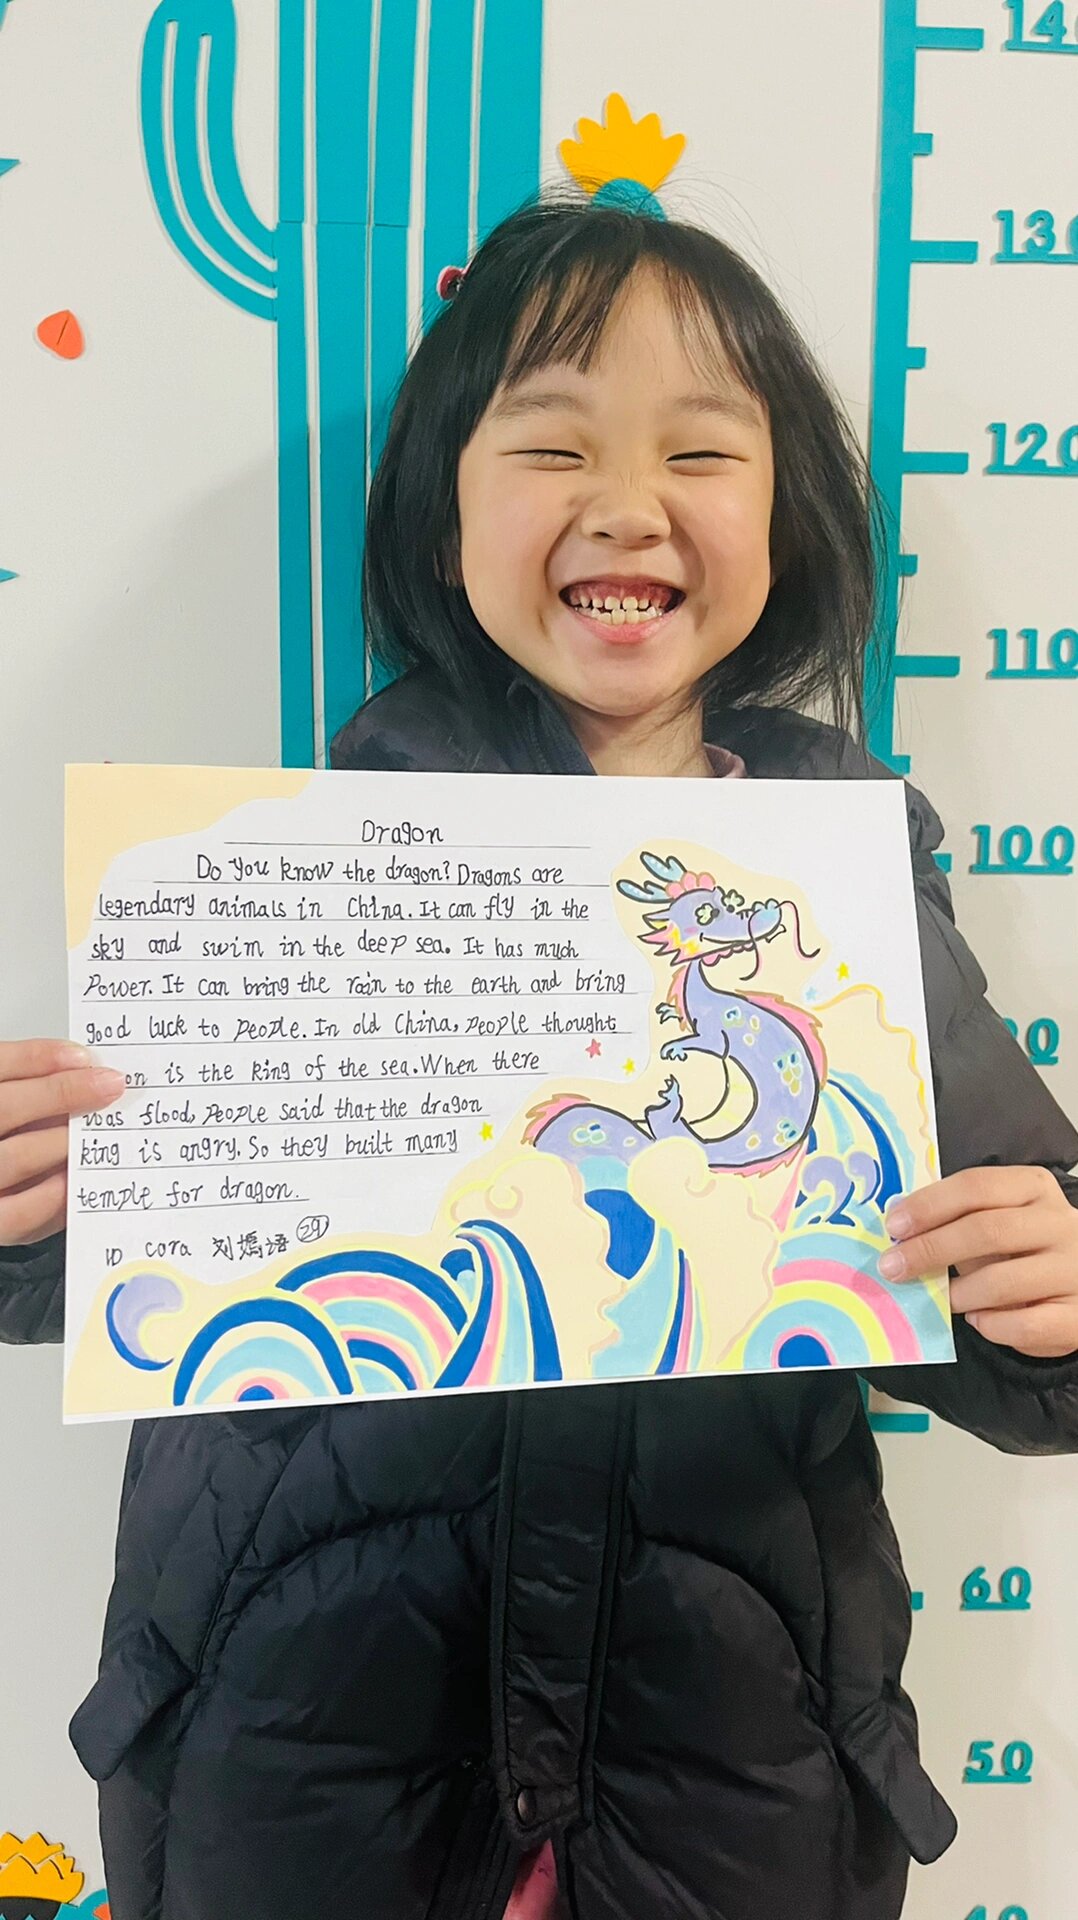 140
130
120
110
100
Dragon
Do you know the dragon? Dragons are
legendary animals in China. It can fly in the
sky and swim in the deep sea. It has much
Power. It can bring the rain to the earth and bring
good luck to people. In old China, people thought
on is the king of the sea. When there
was flood, people said that the dragon
king is angry. So they built many
temple for dragon.
cora 刘 语 29
60
50